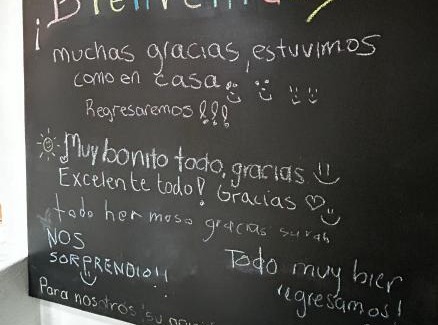 ¡Bienveni
muchas gracias, estuvimos
como en casa
Regresaremos !!!
Muy bonito todo, gracias
Excelente todo! Gracias
todo hermoso gracias sarah
NOS
SORPRENDIO!!
Todo muy bien
regresamos!
Para nosotros su